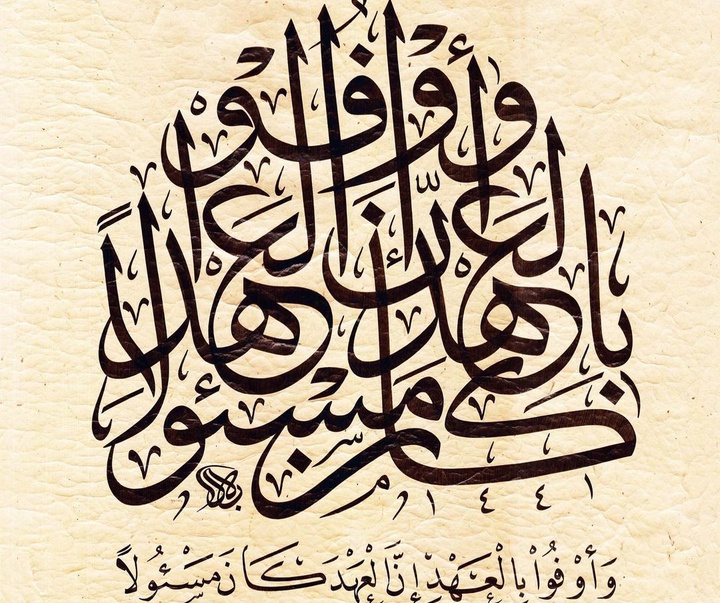 وأوفوا
بالعهد إنّ العهد
كان مسئولاً
١٤٤١
وَأَوْفُواْ بِالْعَهْدِ إِنَّ الْعَهْدَ كَانَ مَسْئُولاً